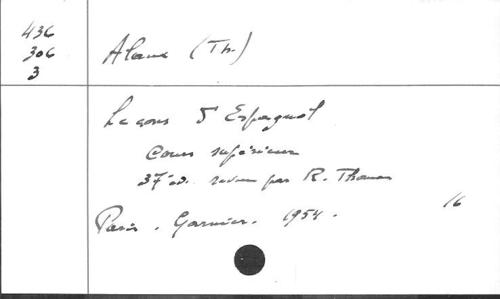 436
306
3
Alaux (Th.)
Leçons d'Espagnol
Cours supérieur
37 éd. revue par R. Thomas
Paris. Garnier. 1954.
16